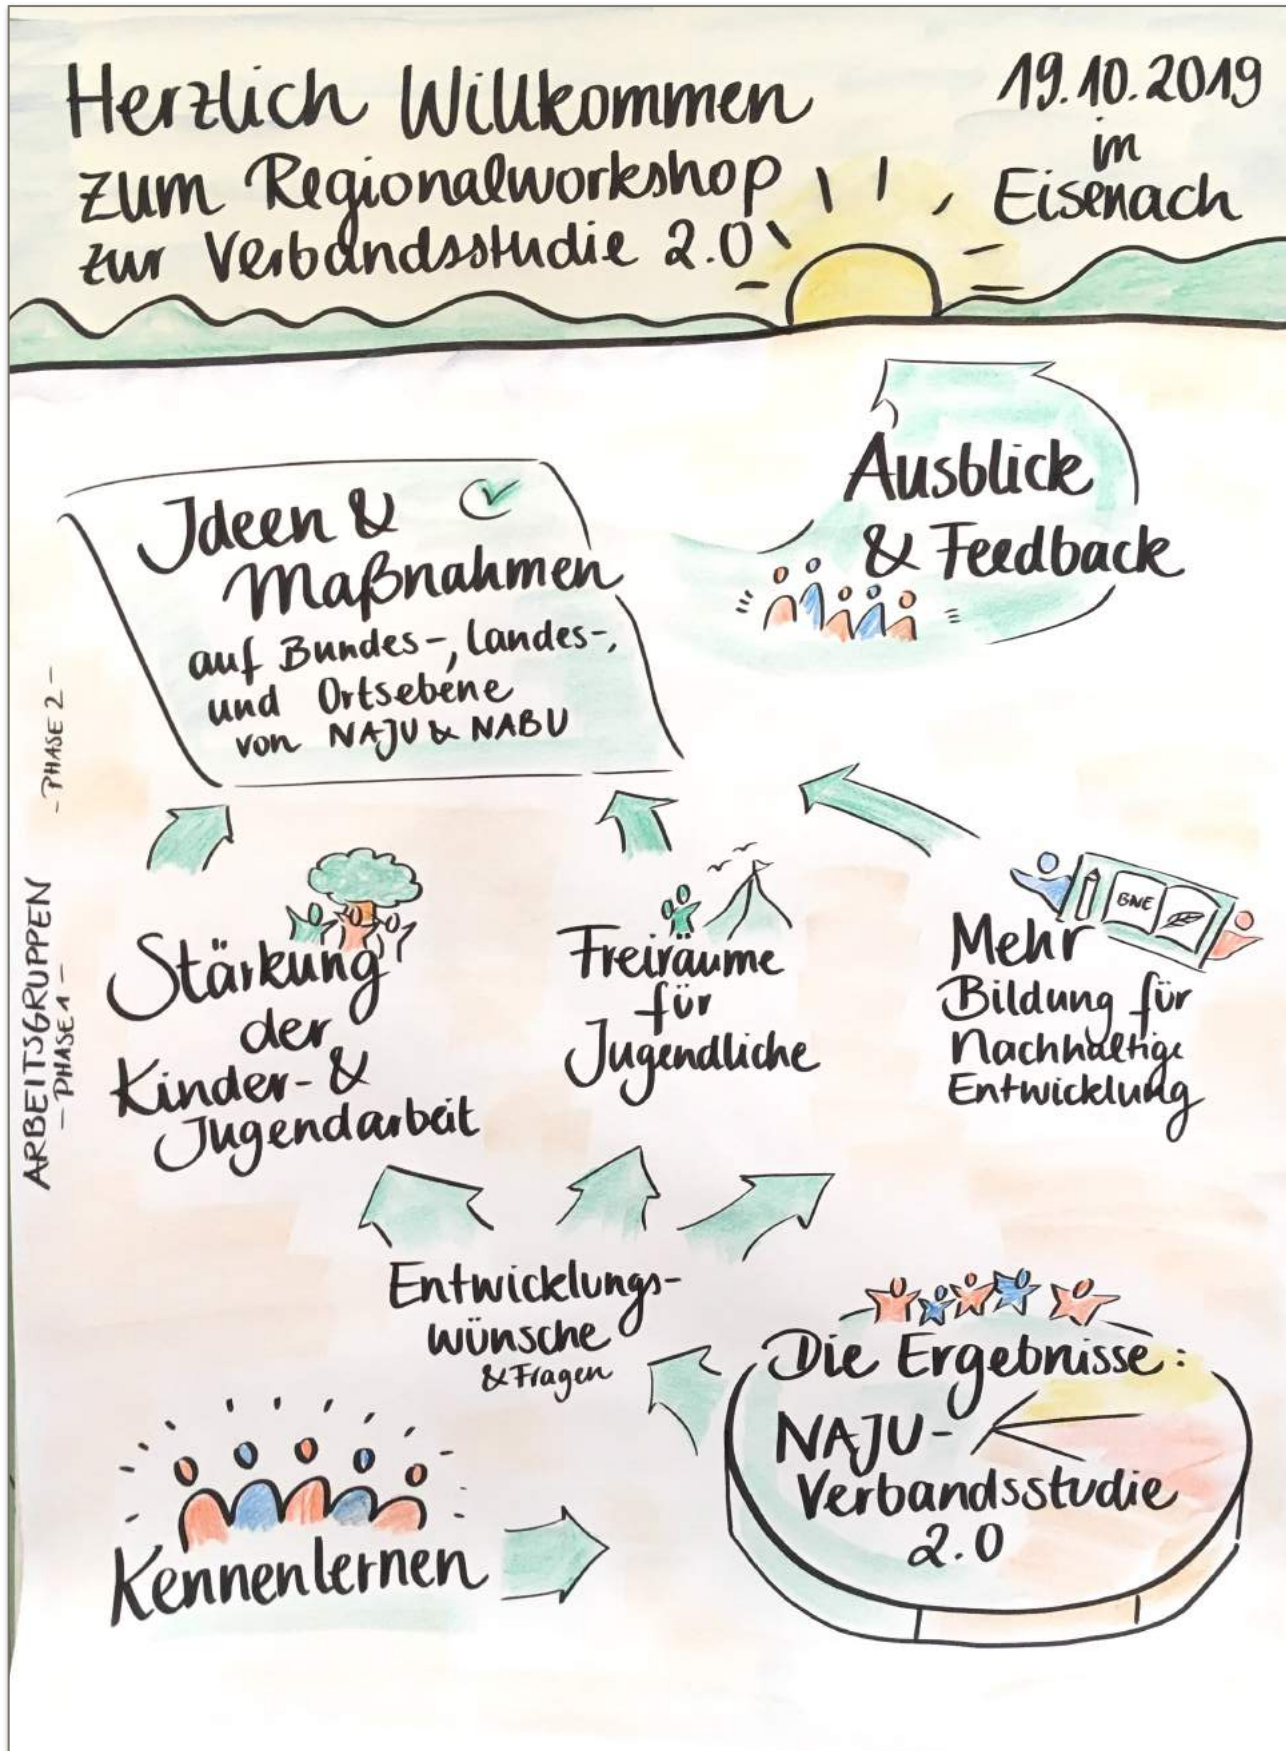 Herzlich Willkommen
zum Regionalworkshop
zur Verbandsstudie 2.0
19.10.2019
in
Eisenach
Ausblick
& Feedback
Ideen &
Maßnahmen
auf Bundes-, Landes-,
und Ortsebene
von NAJU & NABU
ARBEITSGRUPPEN
- PHASE 2 -
- PHASE 1 -
Stärkung
der
Kinder- &
Jugendarbeit
Freiräume
für
Jugendliche
BNE
Mehr
Bildung für
Nachhaltige
Entwicklung
Entwicklungs-
wünsche
& Fragen
Die Ergebnisse:
NAJU-
Verbandsstudie
2.0
Kennenlernen